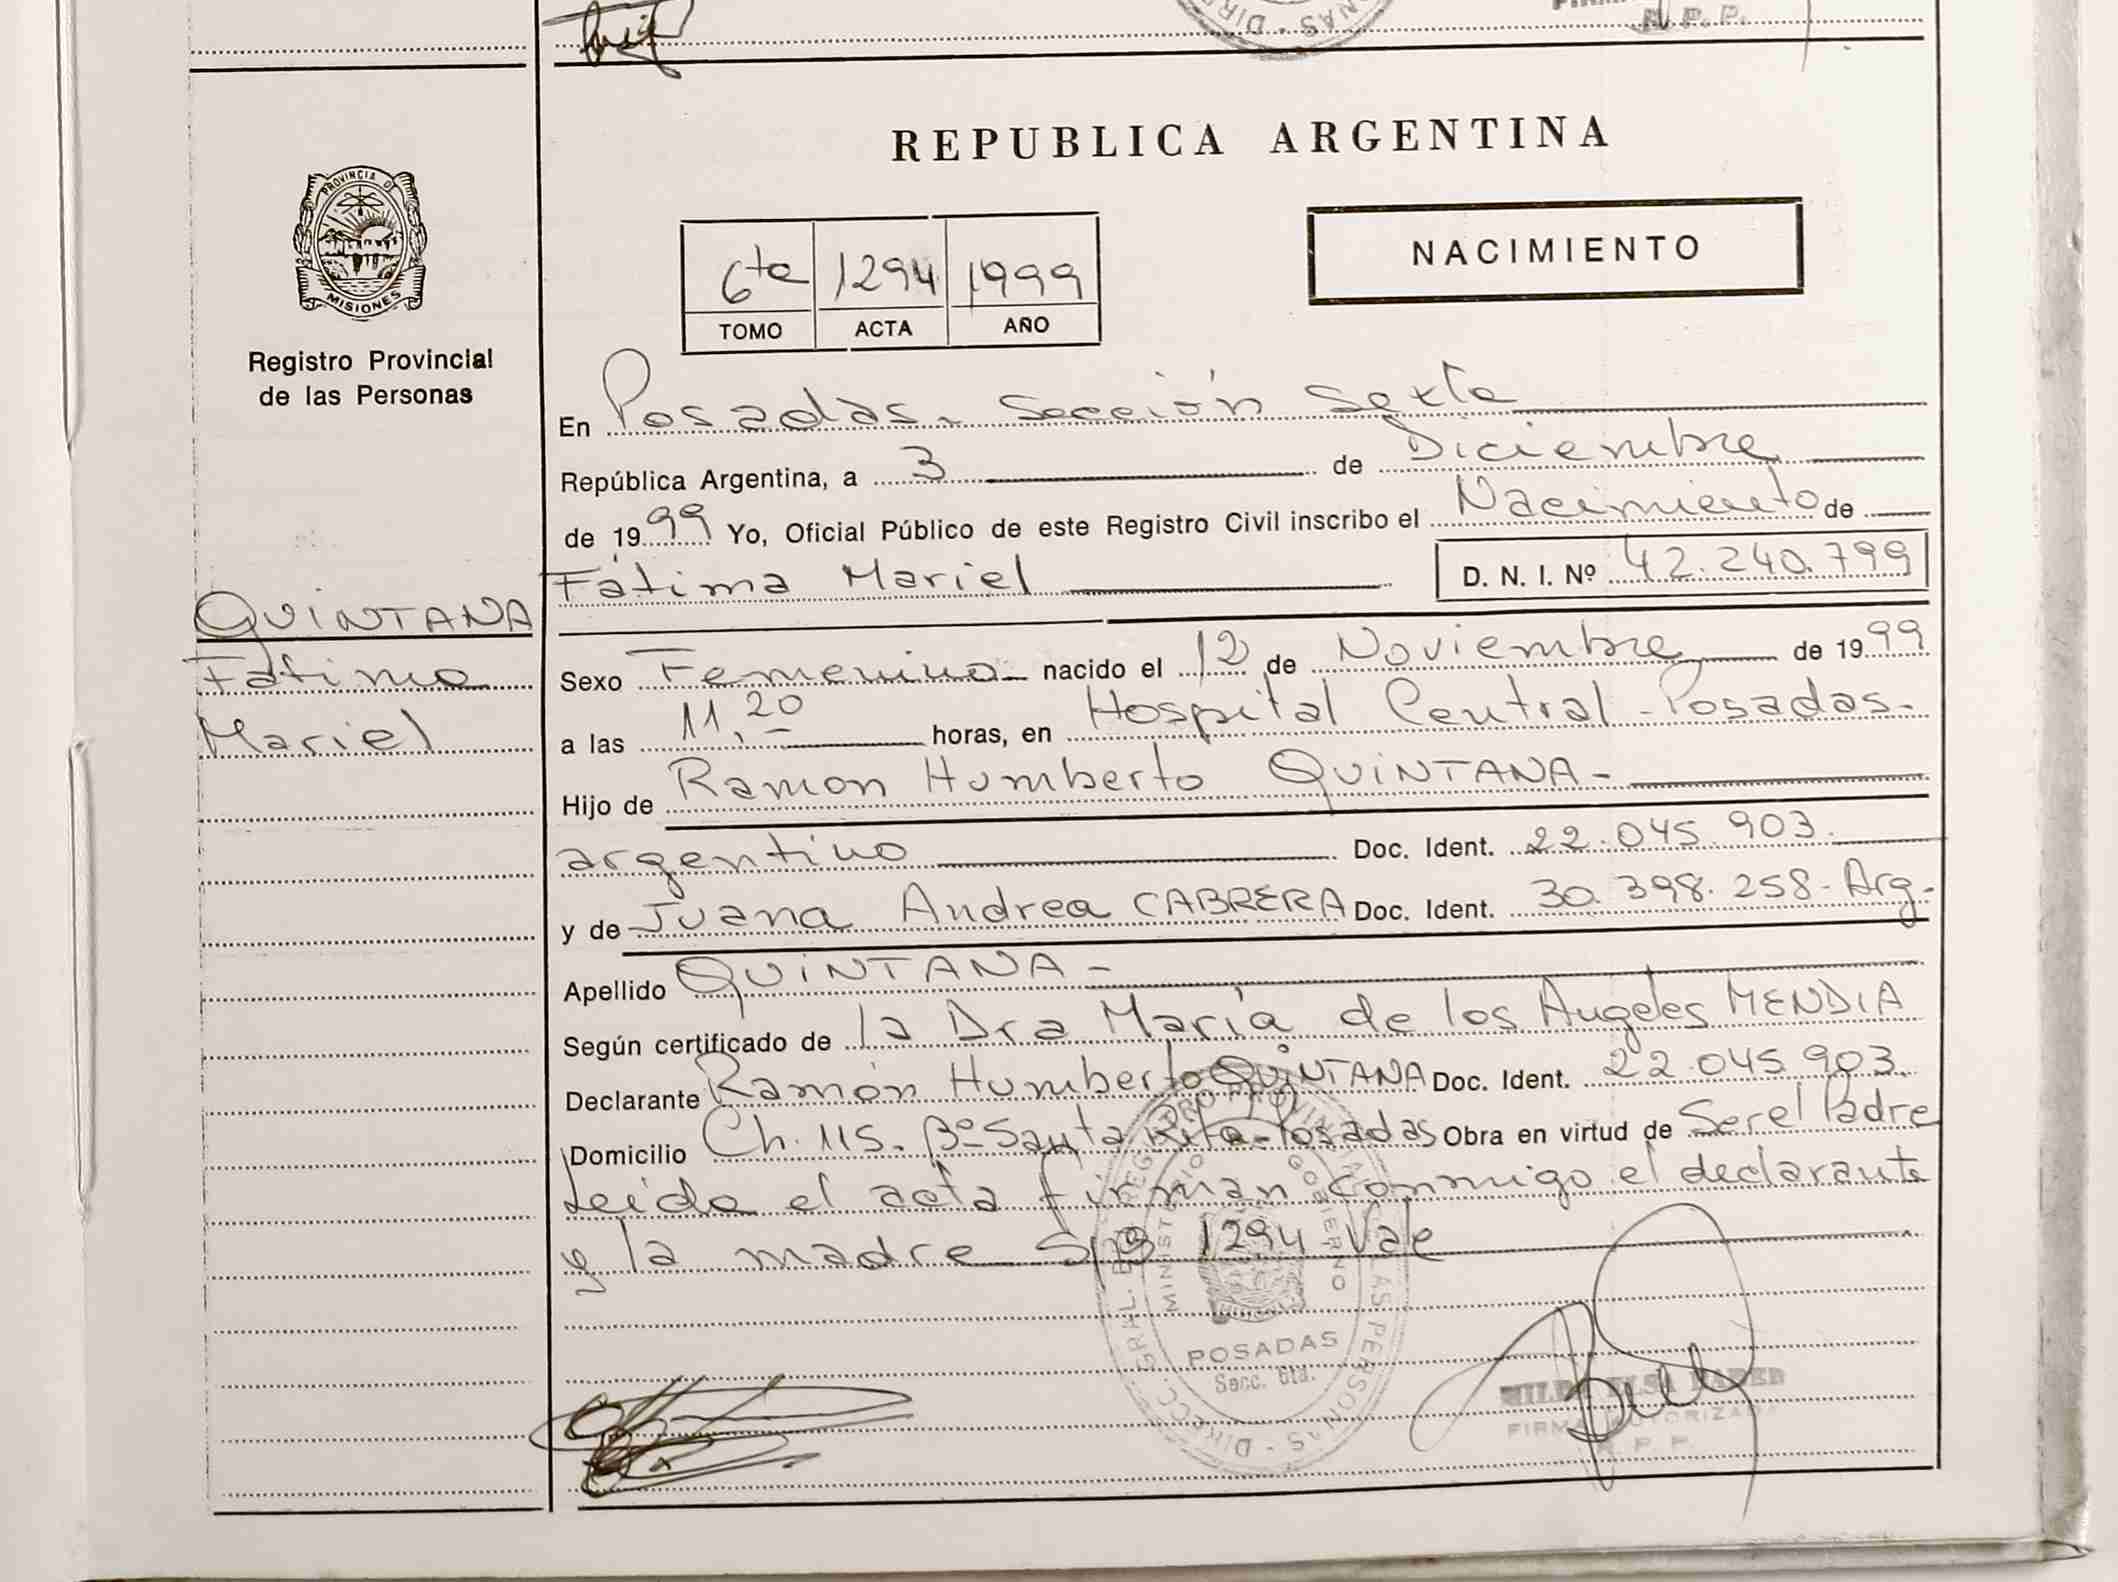 R. P. P.
REPUBLICA ARGENTINA
PROVINCIA DE
MISIONES
Registro Provincial
de las Personas
6ta 1294 1999
TOMO ACTA AÑO
NACIMIENTO
En Posadas - Sección Sexta
República Argentina, a 3 de Diciembre
de 1999 Yo, Oficial Público de este Registro Civil inscribo el Nacimiento de
Fátima Mariel D. N. I. Nº 42.240.799
QUINTANA
Fátima
Mariel
Sexo Femenino nacido el 12 de Noviembre de 1999
a las 11,20 horas, en Hospital Central - Posadas -
Hijo de Ramon Humberto QUINTANA -
argentino Doc. Ident. 22.045.903.
y de Juana Andrea CABRERA Doc. Ident. 30.398.258 - Arg -
Apellido QUINTANA -
Según certificado de la Dra María de los Angeles MENDIA
Declarante Ramón Humberto QUINTANA Doc. Ident. 22.045.903.
Domicilio Ch. 115 - Bº Santa Rita - Posadas Obra en virtud de Ser el Padre
Leida el acta firman conmigo el declarante
y la madre S/B 1294 Vale
DIRECC. GRAL. REGISTRO PROVINCIAL DE LAS PERSONAS
MINISTERIO GOBIERNO
POSADAS
Secc. 6ta.
FIRMA AUTORIZADA
R. P. P.